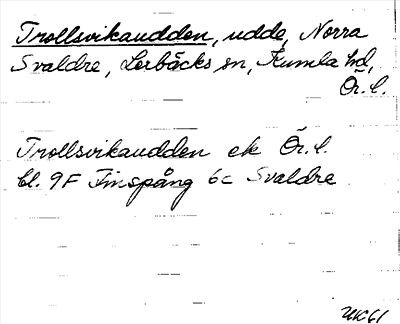 Trollsvikaudden, udde, Norra
Svaldre, Lerbäcks sn, Kumla hd,
Ör. l.
Trollsvikaudden ek Ör. l.
bl. 9F Finspång 6c Svaldre